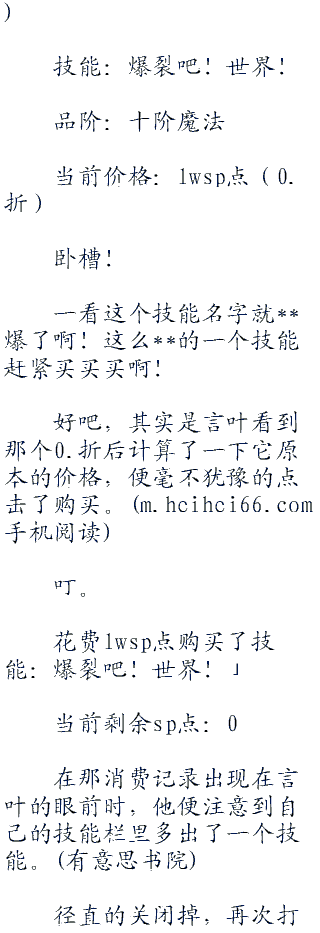 )
技能：爆裂吧！世界！
品阶：十阶魔法
当前价格：1wsp点（0.
折）
卧槽！
一看这个技能名字就**
爆了啊！这么**的一个技能
赶紧买买买啊！
好吧，其实是言叶看到
那个0.折后计算了一下它原
本的价格，便毫不犹豫的点
击了购买。(m.hcihci66.com
手机阅读)
叮。
花费1wsp点购买了技
能：爆裂吧！世界！」
当前剩余sp点：0
在那消费记录出现在言
叶的眼前时，他便注意到自
己的技能栏里多出了一个技
能。(有意思书院)
径直的关闭掉，再次打